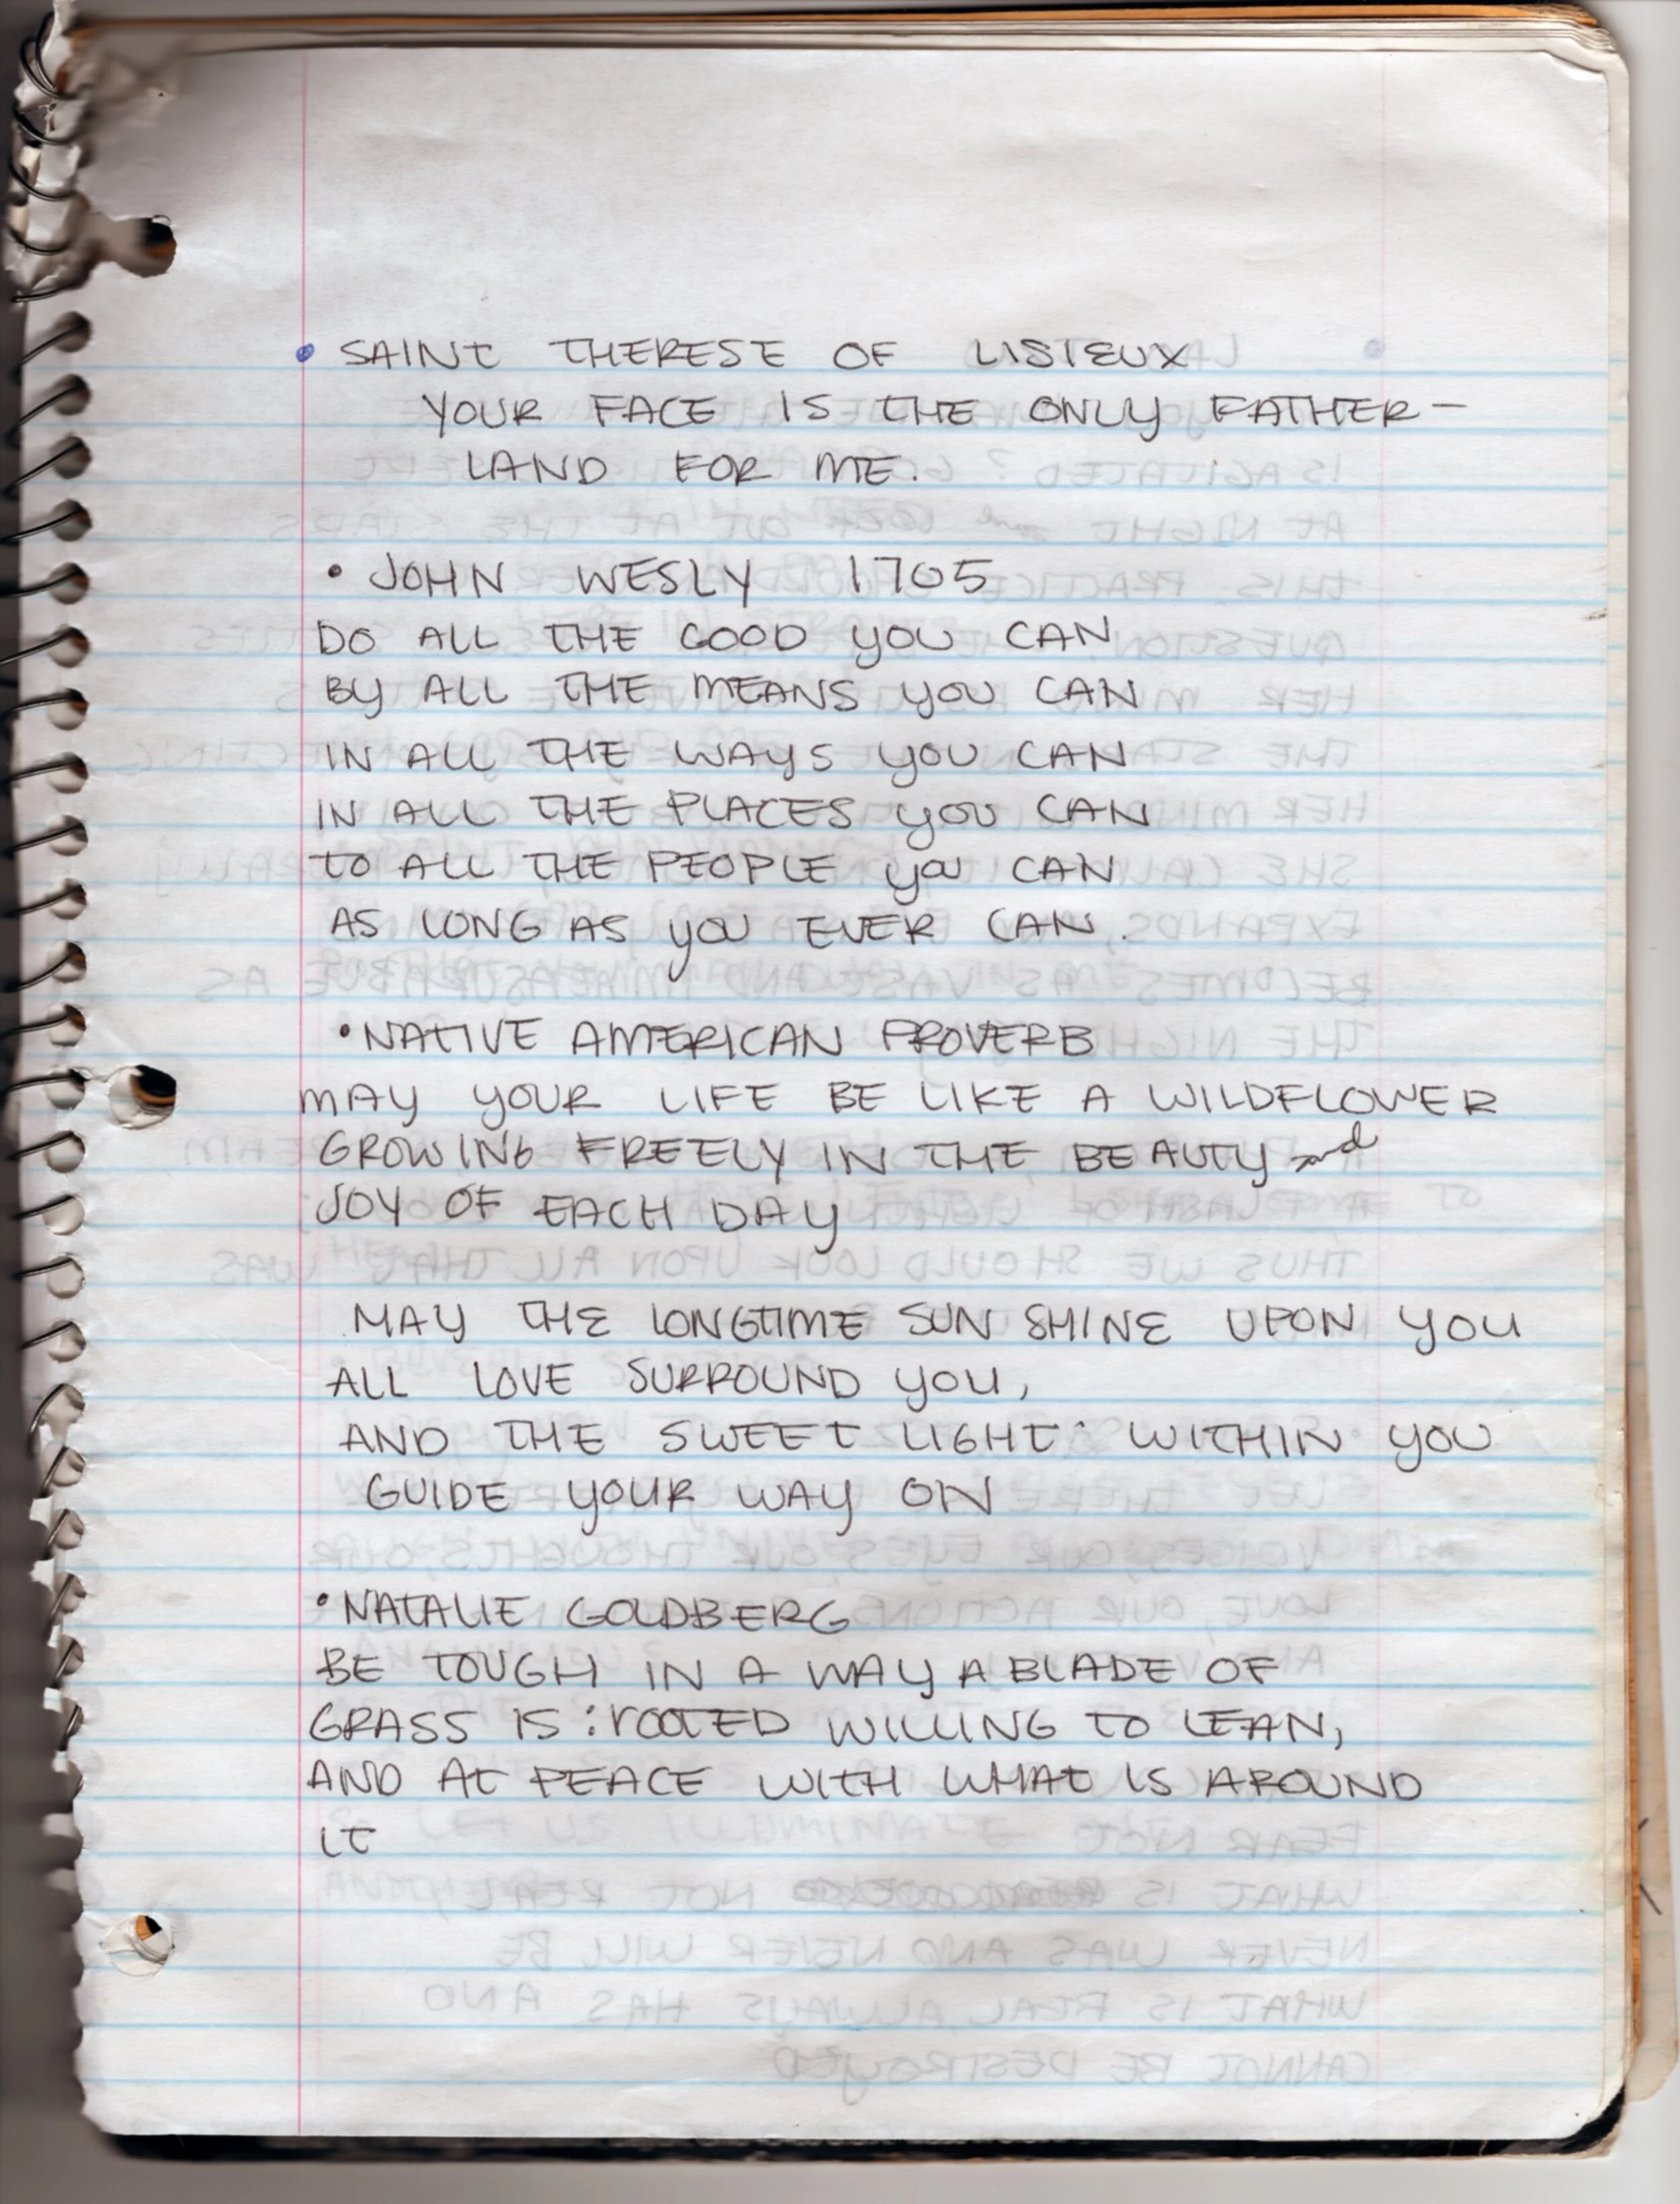 • SAINT THERESE OF LISIEUX
YOUR FACE IS THE ONLY FATHER-
LAND FOR ME.
• JOHN WESLY 1705
DO ALL THE GOOD YOU CAN
BY ALL THE MEANS YOU CAN
IN ALL THE WAYS YOU CAN
IN ALL THE PLACES YOU CAN
TO ALL THE PEOPLE YOU CAN
AS LONG AS YOU EVER CAN.
• NATIVE AMERICAN PROVERB
MAY YOUR LIFE BE LIKE A WILDFLOWER
GROWING FREELY IN THE BEAUTY and
JOY OF EACH DAY
MAY THE LONGTIME SUN SHINE UPON YOU
ALL LOVE SURROUND YOU,
AND THE SWEET LIGHT WITHIN YOU
GUIDE YOUR WAY ON
• NATALIE GOLDBERG
BE TOUGH IN A WAY A BLADE OF
GRASS IS : ROOTED WILLING TO LEAN,
AND AT PEACE WITH WHAT IS AROUND
IT